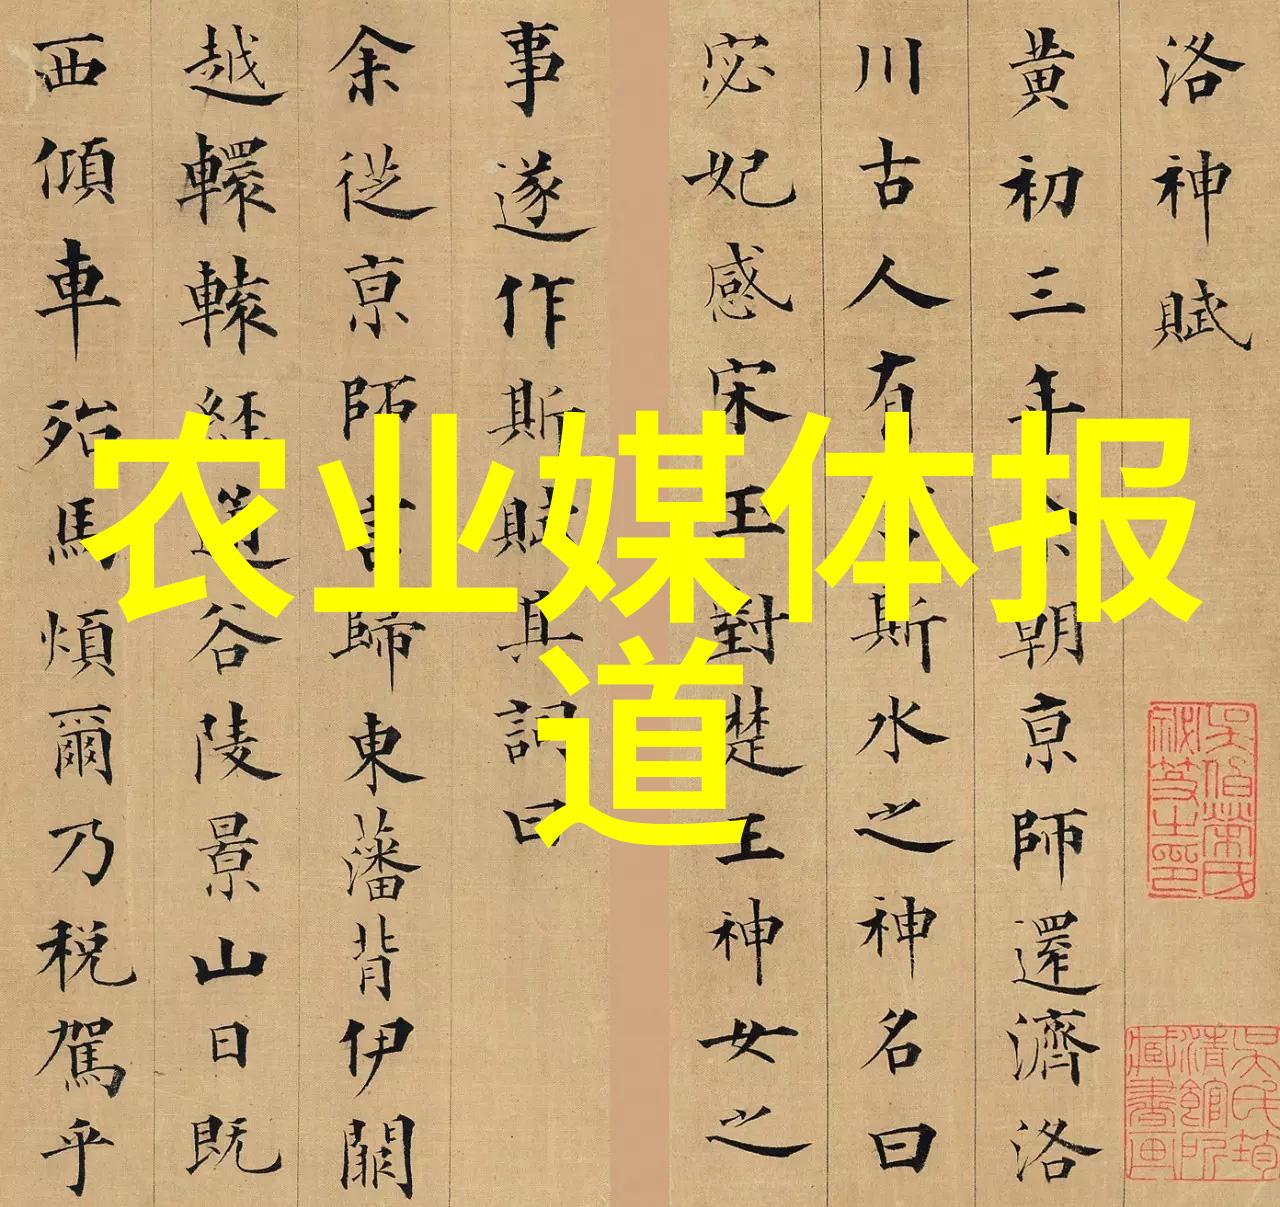 洛神賦
黄初三年余朝亰師還濟洛
川古人有言斯水之神名曰
宓妃感宋玉對楚王神女之
事遂作斯賦其詞曰
余從亰師言歸東藩背伊闕
越轘轅經通谷陵景山日既
西傾車殆馬煩爾乃税駕乎
农业媒体报
道
吴氏筠清館所藏書画